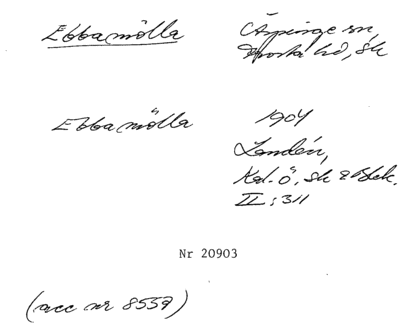 Ebbamölla
Äspinge sn,
Frosta hd, Sk
Ebbamölla
1904
Landén,
Kat. ö. Sk & Blek.
II: 311
Nr 20903
(acc nr 8559)